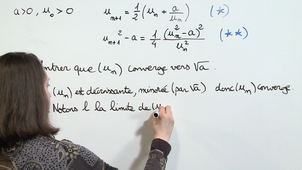 a>0, u₀>0 uₙ₊₁ = 1/2 (uₙ + a/uₙ) (*)
uₙ₊₁² - a = 1/4 (uₙ² - a)²/uₙ² (**)
ntrer que (uₙ) converge vers √a.
(uₙ) est décroissante, minorée (par √a) donc (uₙ) converge
Notons l la limite de u